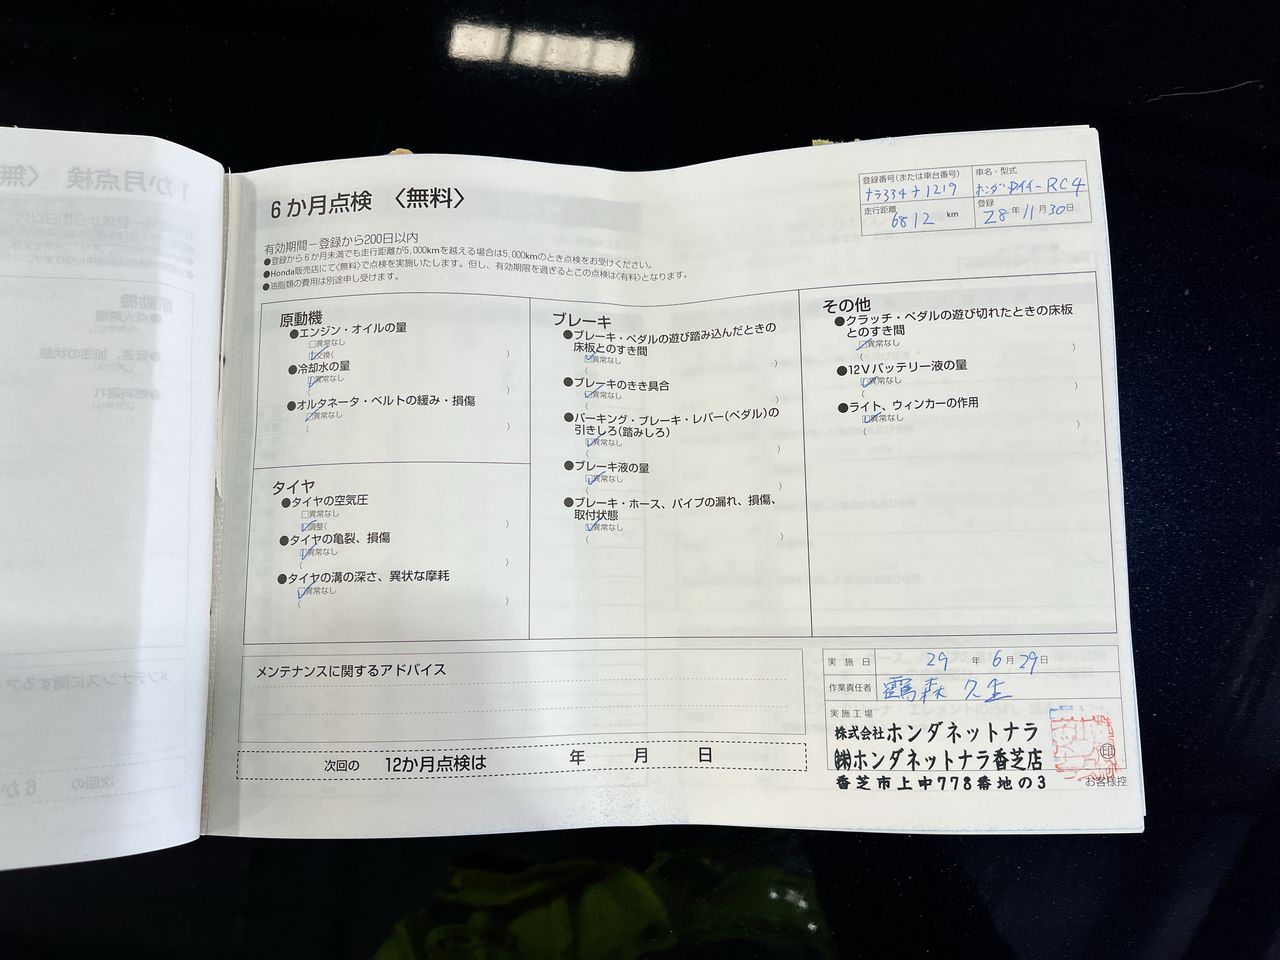 6か月点検〈無料〉
有効期間－登録から200日以内
●登録から6か月未満でも走行距離が5,000kmを越える場合は5,000kmのとき点検をお受けください。
●Honda販売店にて〈無料〉で点検を実施いたします。但し、有効期限を過ぎるとこの点検は〈有料〉となります。
●油脂類の費用は別途申し受けます。
登録番号(または車台番号)
ナラ334ナ1219
車名・型式
RC4
走行距離
6812 km
登録
28年11月30日
原動機
●エンジン・オイルの量
□異常なし
□交換( )
●冷却水の量
□異常なし
( )
●オルタネータ・ベルトの緩み・損傷
□異常なし
( )
タイヤ
●タイヤの空気圧
□異常なし
□調整( )
●タイヤの亀裂、損傷
□異常なし
( )
●タイヤの溝の深さ、異状な摩耗
□異常なし
( )
ブレーキ
●ブレーキ・ペダルの遊び踏み込んだときの
床板とのすき間
□異常なし
( )
●ブレーキのきき具合
□異常なし
( )
●パーキング・ブレーキ・レバー(ペダル)の
引きしろ(踏みしろ)
□異常なし
( )
●ブレーキ液の量
□異常なし
( )
●ブレーキ・ホース、パイプの漏れ、損傷、
取付状態
□異常なし
( )
その他
●クラッチ・ペダルの遊び切れたときの床板
とのすき間
□異常なし
( )
●12Vバッテリー液の量
□異常なし
( )
●ライト、ウィンカーの作用
□異常なし
( )
メンテナンスに関するアドバイス
次回の 12か月点検は 年 月 日
実施日 29年6月29日
作業責任者
実施工場
株式会社ホンダネットナラ
㈱ホンダネットナラ香芝店
香芝市上中778番地の3
印
お客様控